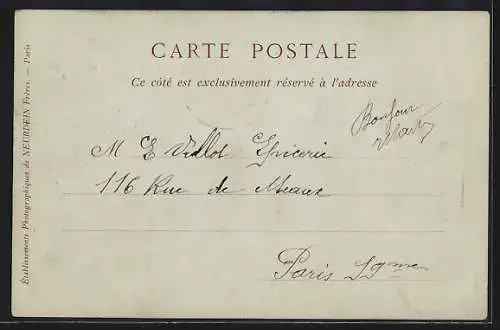 CARTE POSTALE
Ce côté est exclusivement réservé à l'adresse
Bonjour
M E Vallot Epicerie
116 Rue de Meaux
Paris 19me
Etablissements Photographiques de NEURDEIN Frères. — Paris